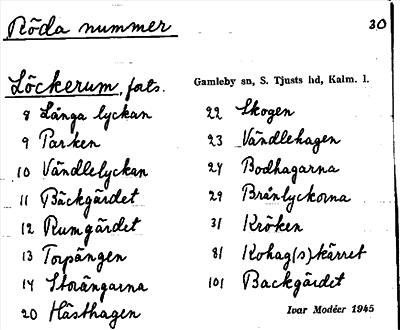 Röda nummer
30
Löckerum, forts.
Gamleby sn, S. Tjusts hd, Kalm. l.
8 Långa lyckan
9 Parken
10 Vändlelyckan
11 Bäckgärdet
12 Rumgärdet
13 Torpängen
14 Storängarna
20 Hästhagen
22 Skogen
23 Vändlehagen
24 Bodhagarna
29 Brånlyckorna
31 Kröken
81 Kohag(s)kärret
101 Backgärdet
Ivar Modéer 1945